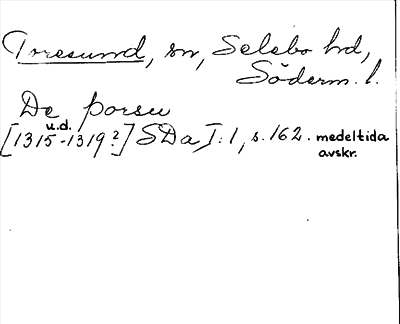 Toresund, sn, Selebo hd,
Söderm. l.
De þorsu
u.d.
[1315-1319?] SDa I:1, s. 162. medeltida
avskr.